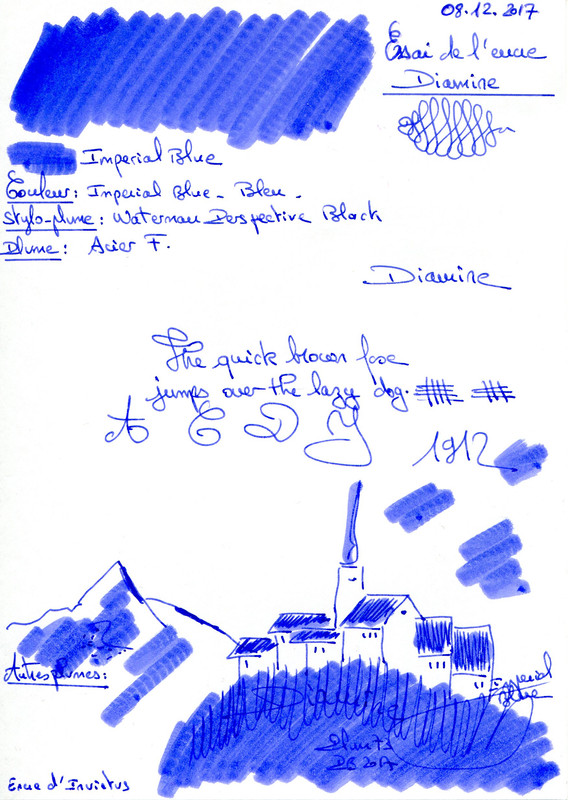 08.12.2017
Essai de l'encre
Diamine
Imperial Blue
Couleur: Imperial Blue - Bleu.
Stylo-plume: Waterman Perspective Black
Plume: Acier F.
Diamine
The quick brown fox
jumps over the lazy dog.
A E D Y
1912
Autres plumes:
Imperial
Blue
Diamine
DB 2017
Encre d'Invictus